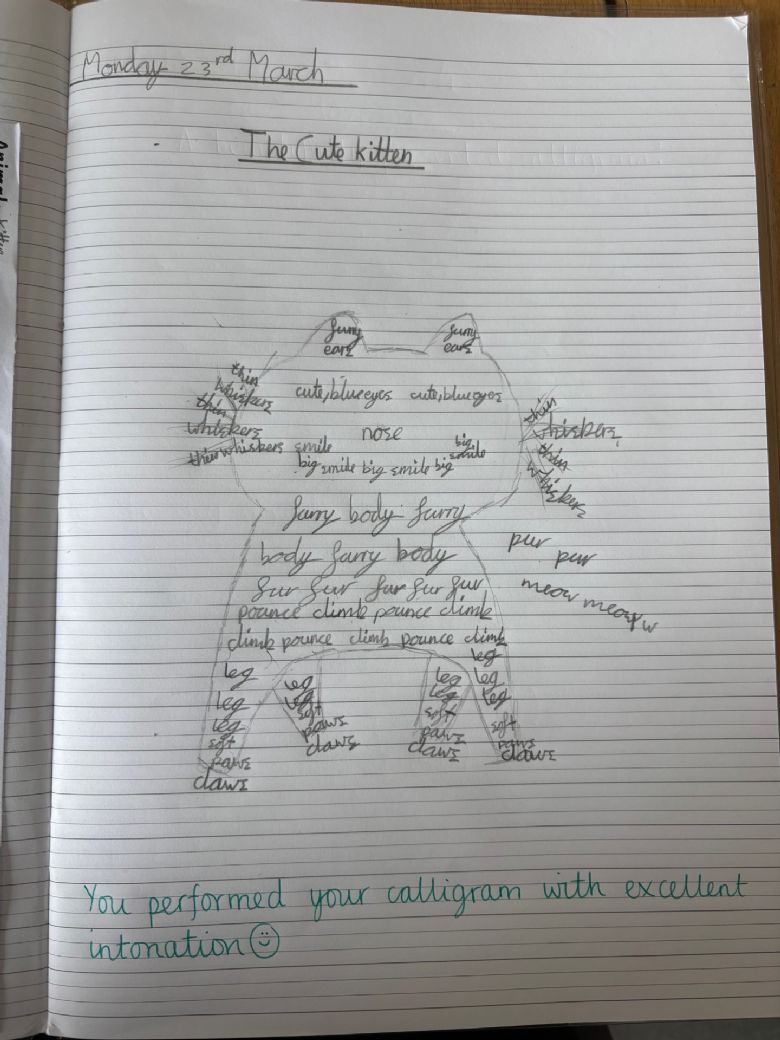 Monday 23rd March
The Cute kitten
furry
ears
furry
ears
thin
whiskers
thin
whiskers
thin whiskers
cute, blue eyes cute, blue eyes
nose
smile
big
smile
big smile big smile big
thin
whiskers
thin
whiskers
furry body furry
body furry body
fur fur fur fur fur
pounce climb pounce climb
climb pounce climb pounce climb
pur
pur
meow meow
leg
leg
leg
soft
paws
claws
leg
leg
soft
paws
claws
leg
leg
soft
paws
claws
leg
leg
leg
soft
paws
claws
You performed your calligram with excellent
intonation
Animal
kitten